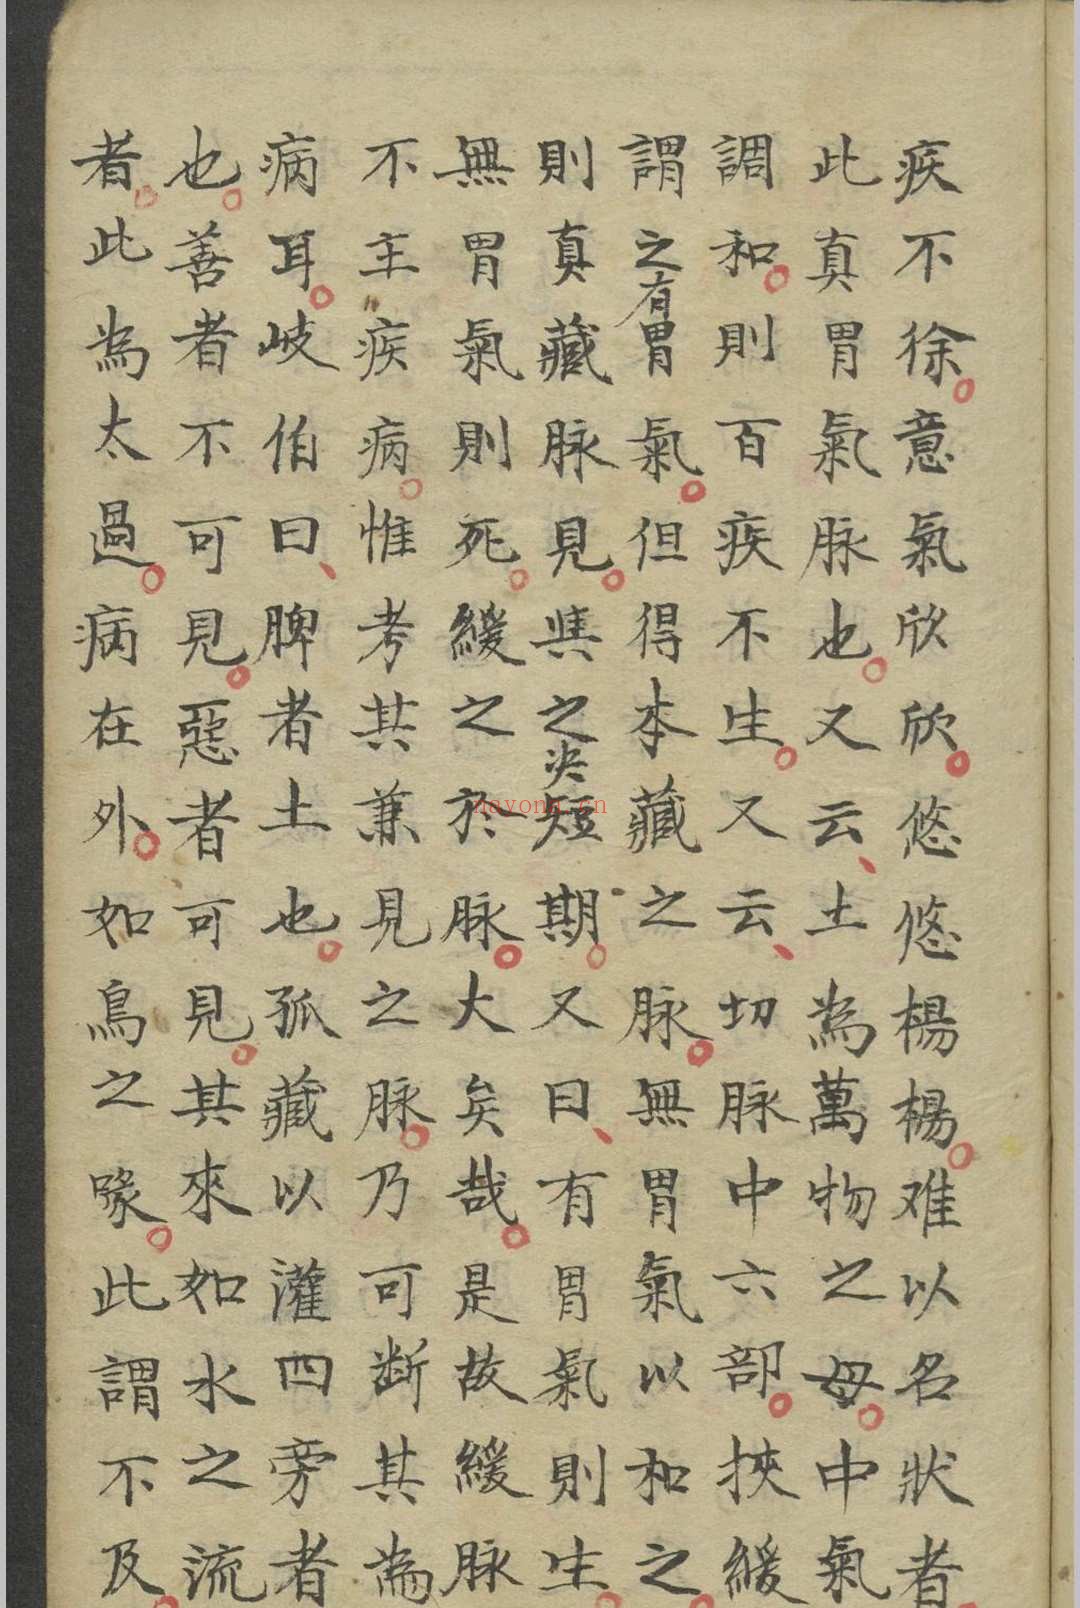 疾不徐意氣欣欣悠悠楊楊难以名狀者
此真胃氣脉也又云土為萬物之母中氣
調和則百疾不生又云切脉中六部挾緩
謂之有胃氣但得本藏之脉無胃氣以和之
則真藏脉見與之决短期又曰有胃氣則生
無胃氣則死緩之於脉大矣哉是故緩脉
不主疾病惟考其兼見之脉乃可断其為
病耳岐伯曰脾者土也孤藏以灌四旁者
也善者不可見惡者可見其來如水之流
者此為太過病在外如鳥之喙此謂不及
nayona.cn